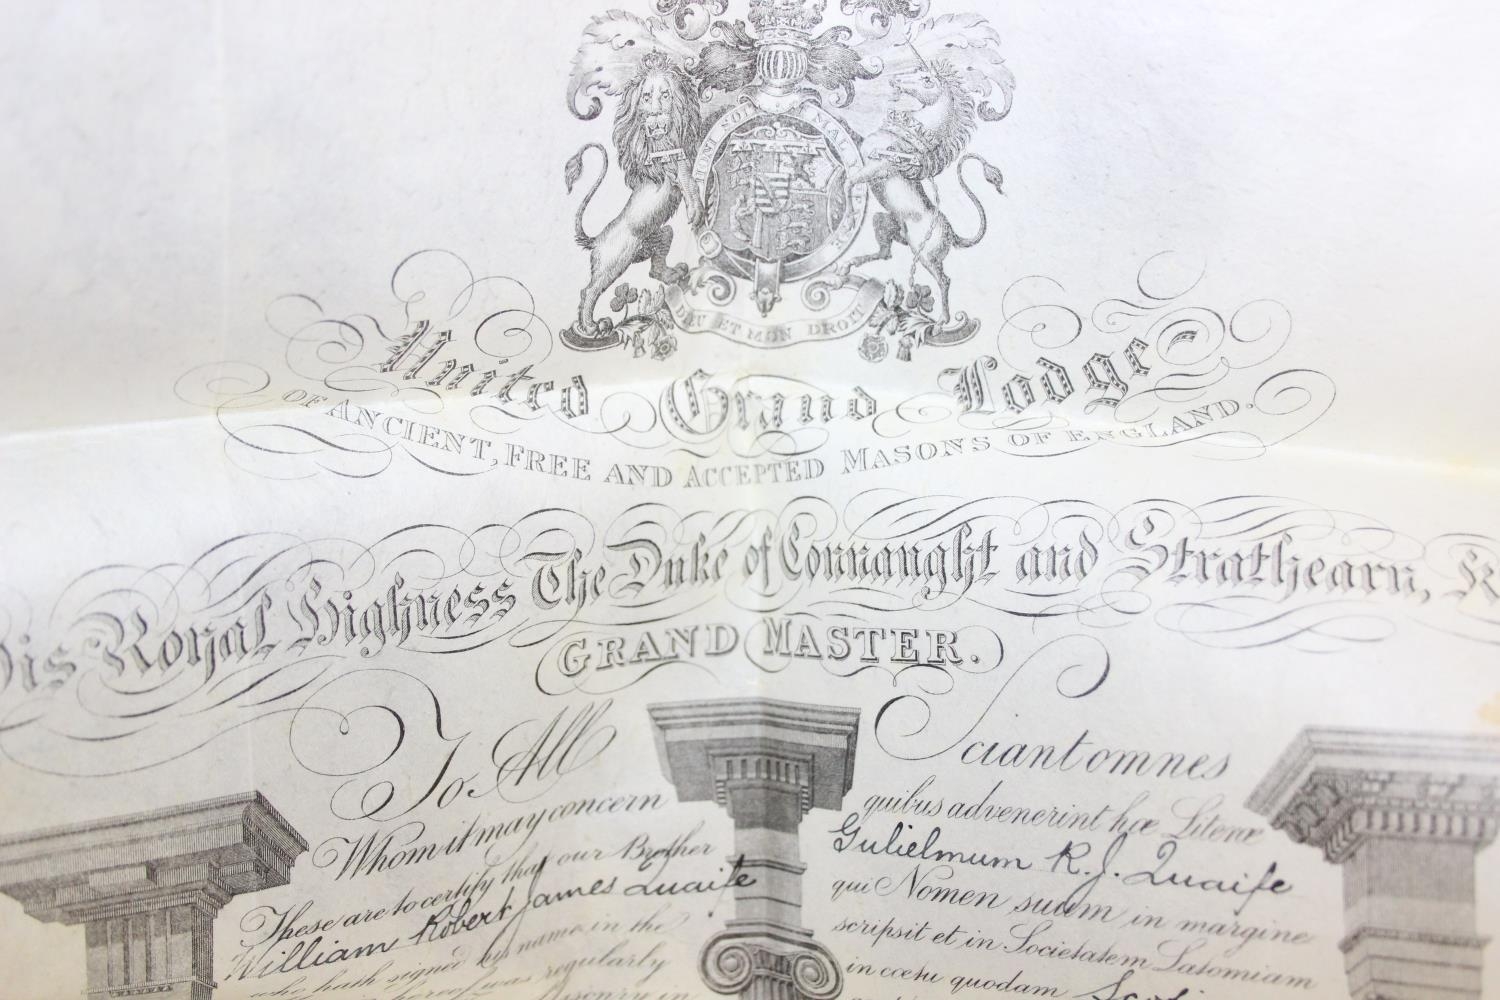 HONI SOIT MAL
DIEU ET MON DROIT
United Grand Lodge
OF ANCIENT, FREE AND ACCEPTED MASONS OF ENGLAND.
His Royal Highness The Duke of Connaught and Strathearn, K
GRAND MASTER.
To All
Whom it may concern
These are to certify that our Brother
William Robert James Quaife
who hath signed his name in the
hereof was regularly
Masonry in
Sciant omnes
quibus advenerint hæ Literæ
Gulielmum R. J. Quaife
qui Nomen suum in margine
scripsit et in Societatem Latomiam
in cœtu quodam